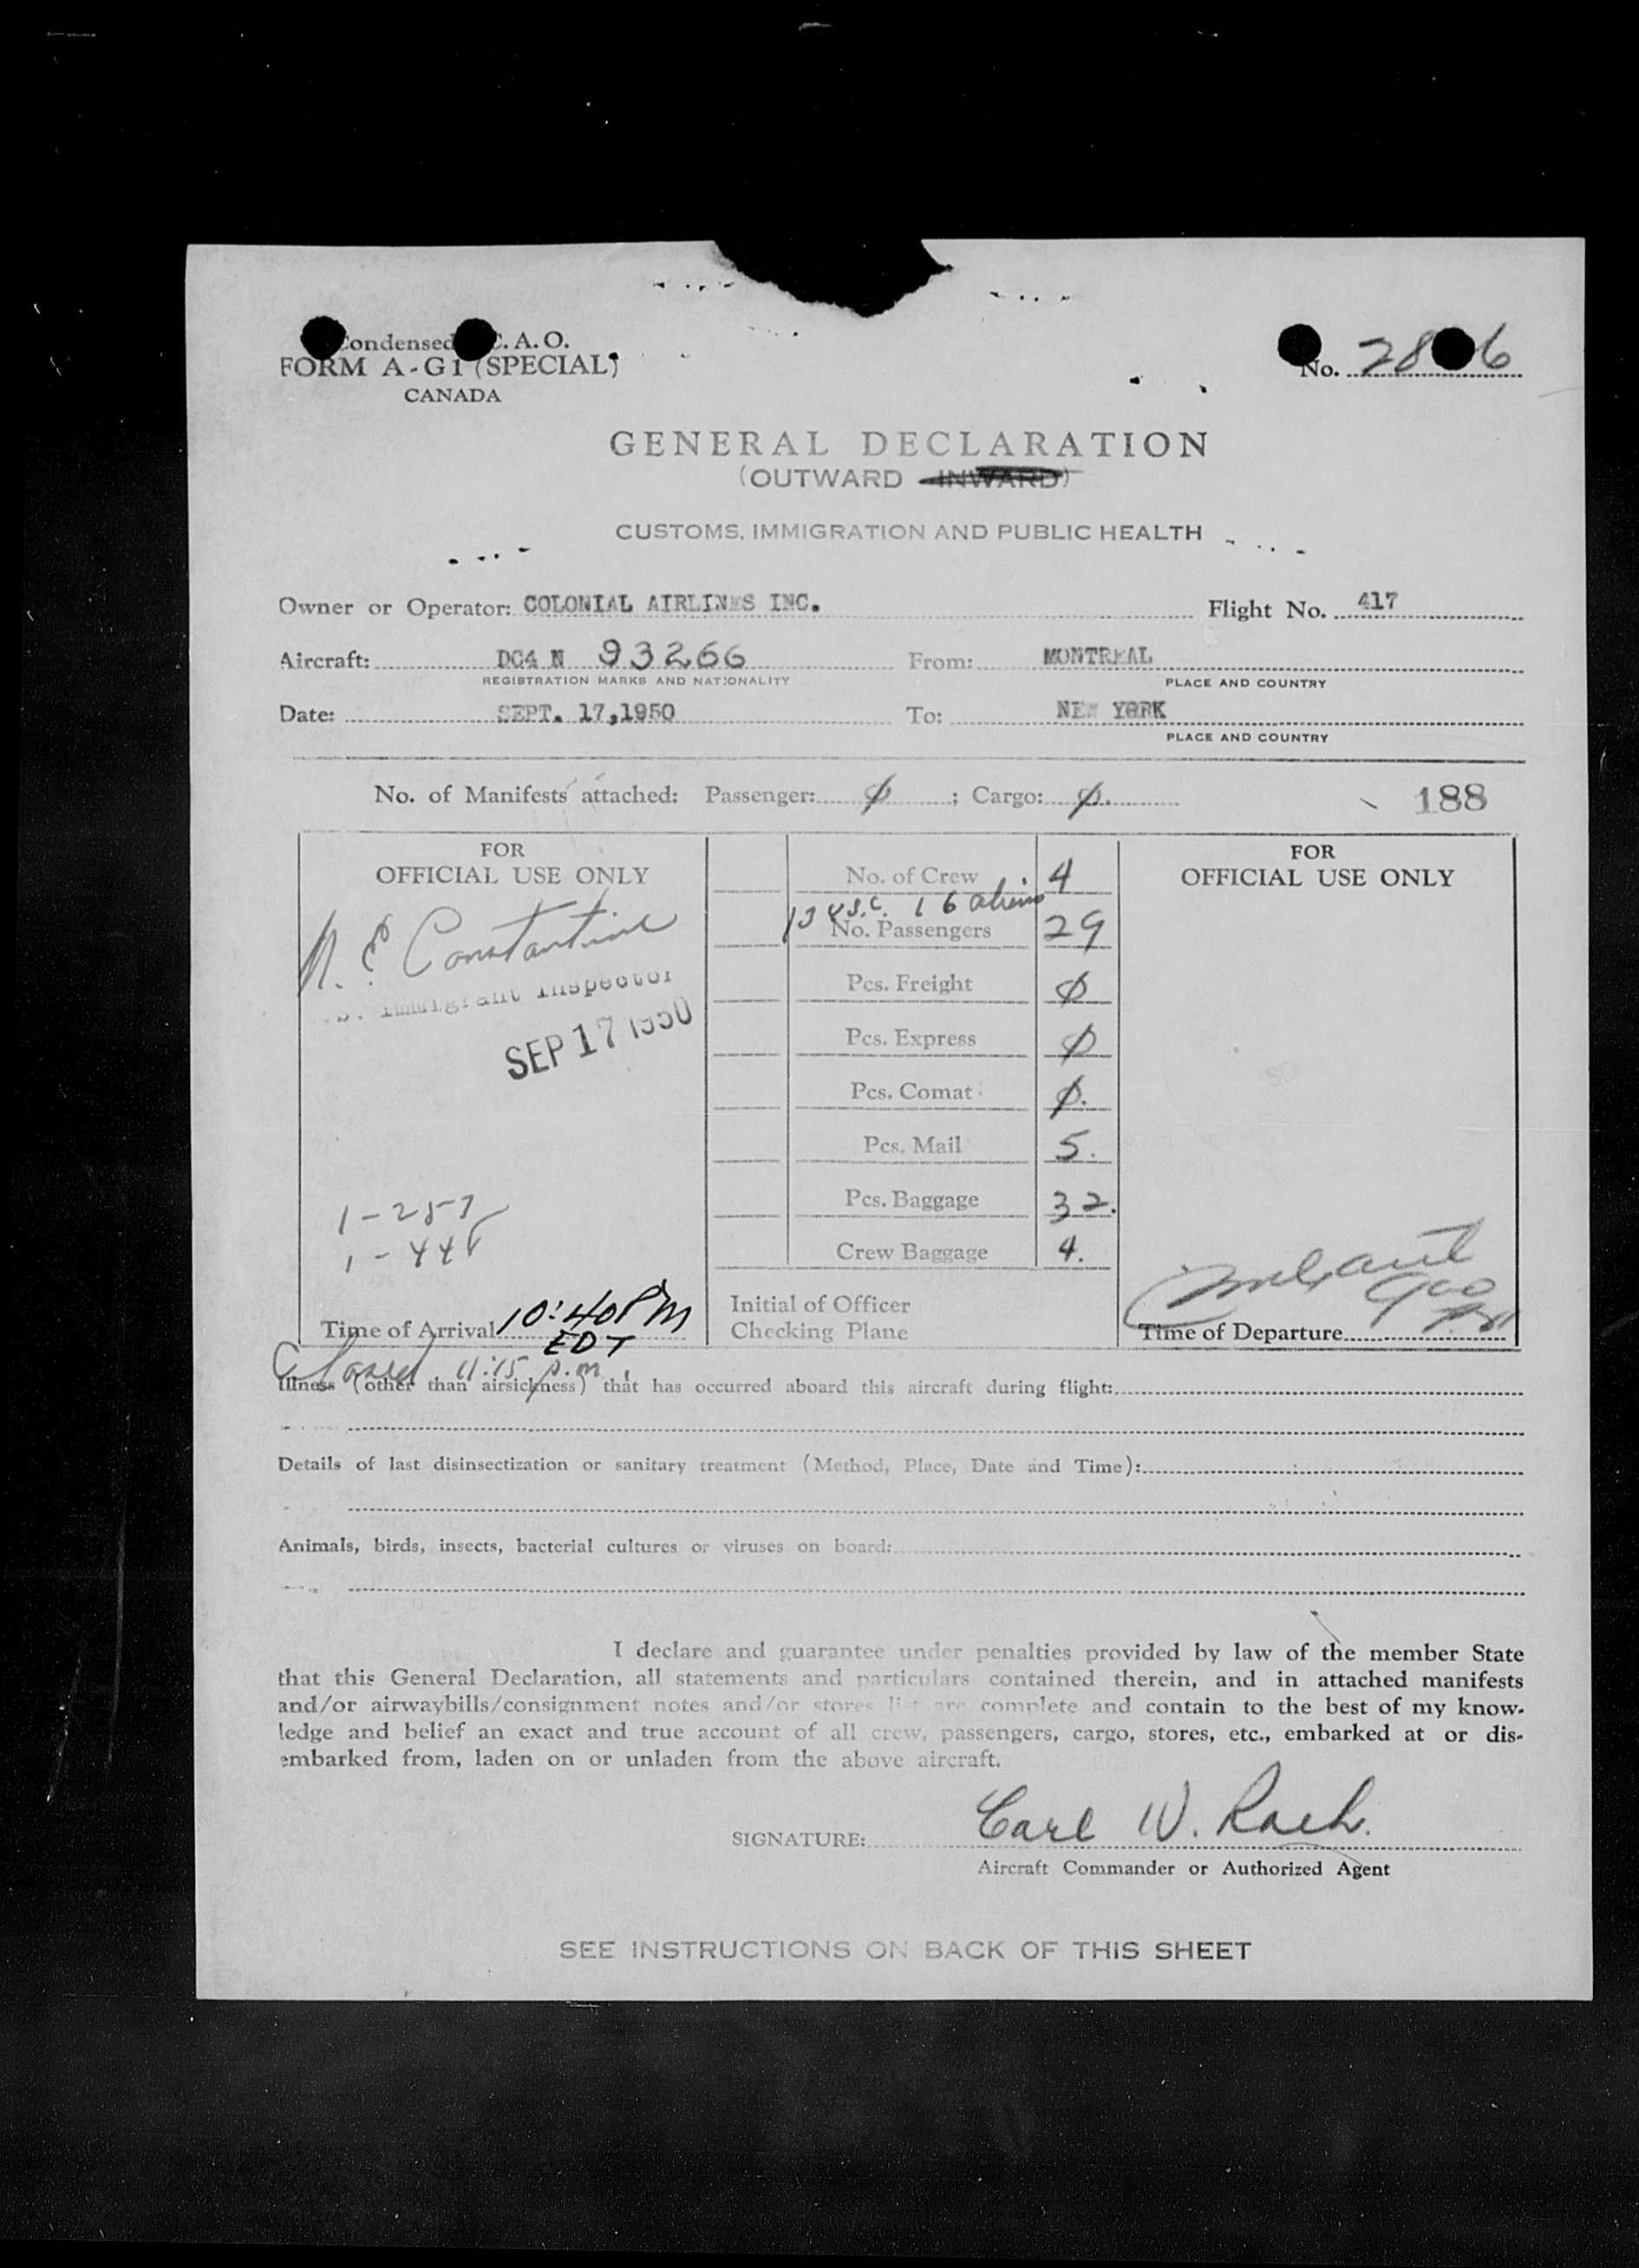 Condensed I.C.A.O.
FORM A-G1 (SPECIAL)
CANADA
No. 28 6
GENERAL DECLARATION
(OUTWARD INWARD)
CUSTOMS, IMMIGRATION AND PUBLIC HEALTH
Owner or Operator: COLONIAL AIRLINES INC. Flight No. 417
Aircraft: DC4 N 93266 From: MONTREAL
REGISTRATION MARKS AND NATIONALITY PLACE AND COUNTRY
Date: SEPT. 17,1950 To: NEW YORK
PLACE AND COUNTRY
No. of Manifests attached: Passenger: ∅ ; Cargo: ∅. 188
FOR
OFFICIAL USE ONLY
N. E. Constantine
S. Immigrant Inspector
SEP 17 1950
1-257
1-448
Time of Arrival 10:40 PM
EDT
No. of Crew 4
13 U.S.C. 16 aliens
No. Passengers 29
Pcs. Freight ∅
Pcs. Express ∅
Pcs. Comat ∅.
Pcs. Mail 5.
Pcs. Baggage 32.
Crew Baggage 4.
Initial of Officer
Checking Plane
FOR
OFFICIAL USE ONLY
900
Time of Departure
Cleared 11:15 p.m.
Illness (other than airsickness) that has occurred aboard this aircraft during flight:
Details of last disinsectization or sanitary treatment (Method, Place, Date and Time):
Animals, birds, insects, bacterial cultures or viruses on board:
I declare and guarantee under penalties provided by law of the member State
that this General Declaration, all statements and particulars contained therein, and in attached manifests
and/or airwaybills/consignment notes and/or stores list are complete and contain to the best of my know-
ledge and belief an exact and true account of all crew, passengers, cargo, stores, etc., embarked at or dis-
embarked from, laden on or unladen from the above aircraft.
SIGNATURE: Carl W. Rach.
Aircraft Commander or Authorized Agent
SEE INSTRUCTIONS ON BACK OF THIS SHEET